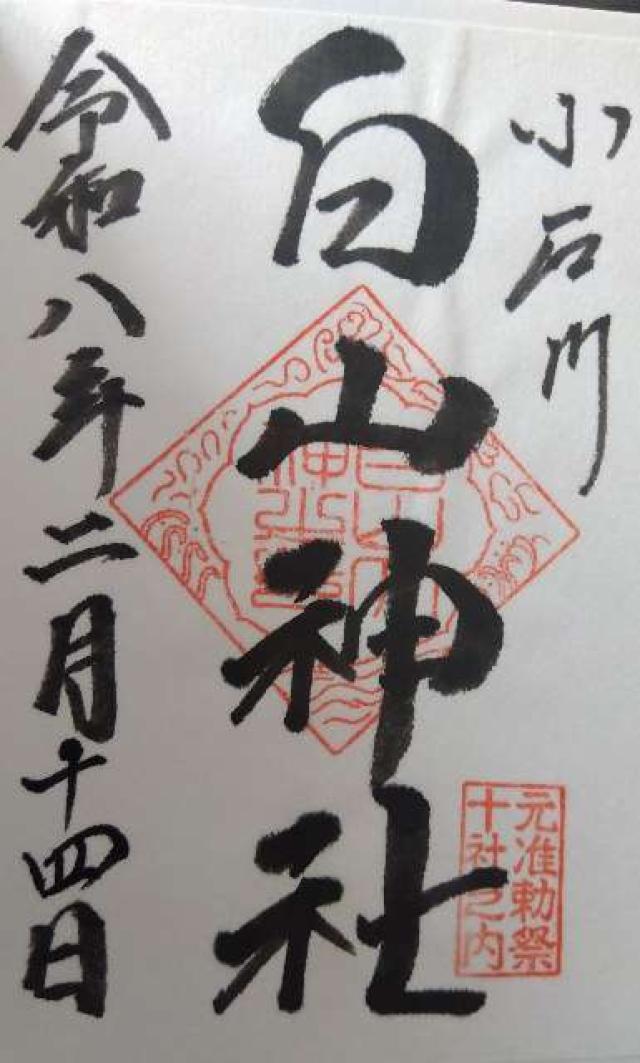 小石川
白山神社
元准勅祭
十社之内
令和八年二月十四日